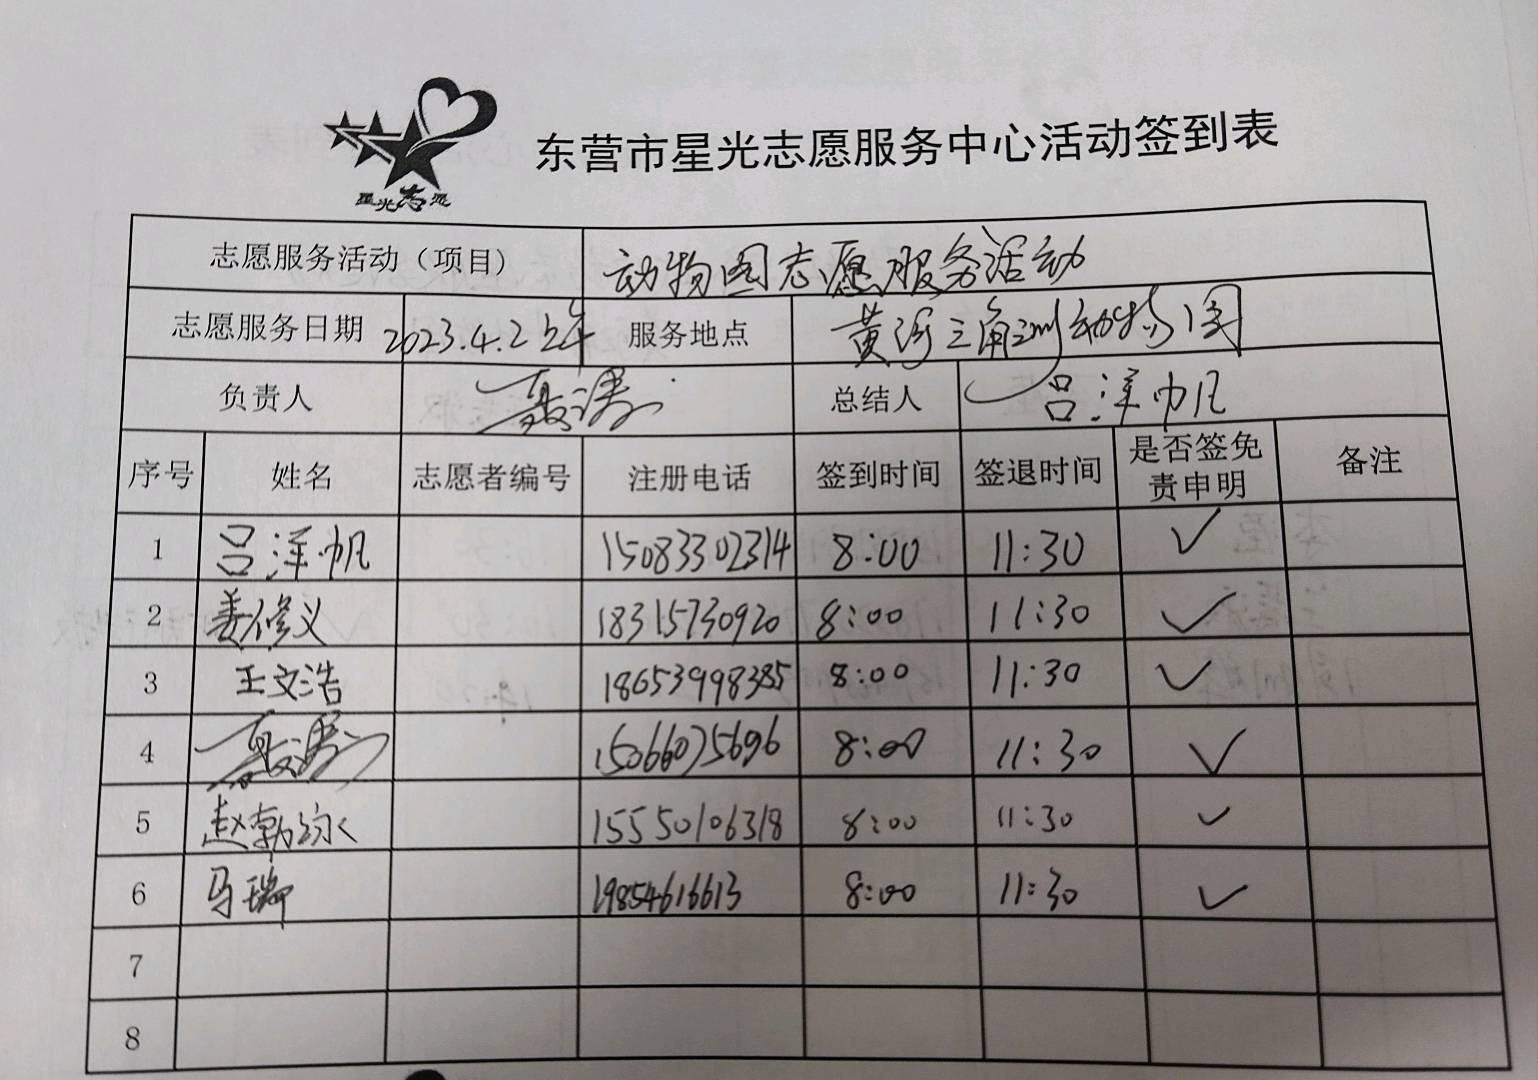 星光志愿
东营市星光志愿服务中心活动签到表
志愿服务活动（项目） 动物园志愿服务活动
志愿服务日期 2023.4.2上午 服务地点 黄河三角洲动物园
负责人 聂涛 总结人 吕洋帆
序号 姓名 志愿者编号 注册电话 签到时间 签退时间 是否签免责申明 备注
1 吕洋帆 15083302314 8:00 11:30 ✓
2 姜修义 18315730920 8:00 11:30 ✓
3 王文浩 18653998385 8:00 11:30 ✓
4 聂涛 15066075696 8:00 11:30 ✓
5 赵 15550106318 8:00 11:30 ✓
6 马瑞 19854616613 8:00 11:30 ✓
7
8